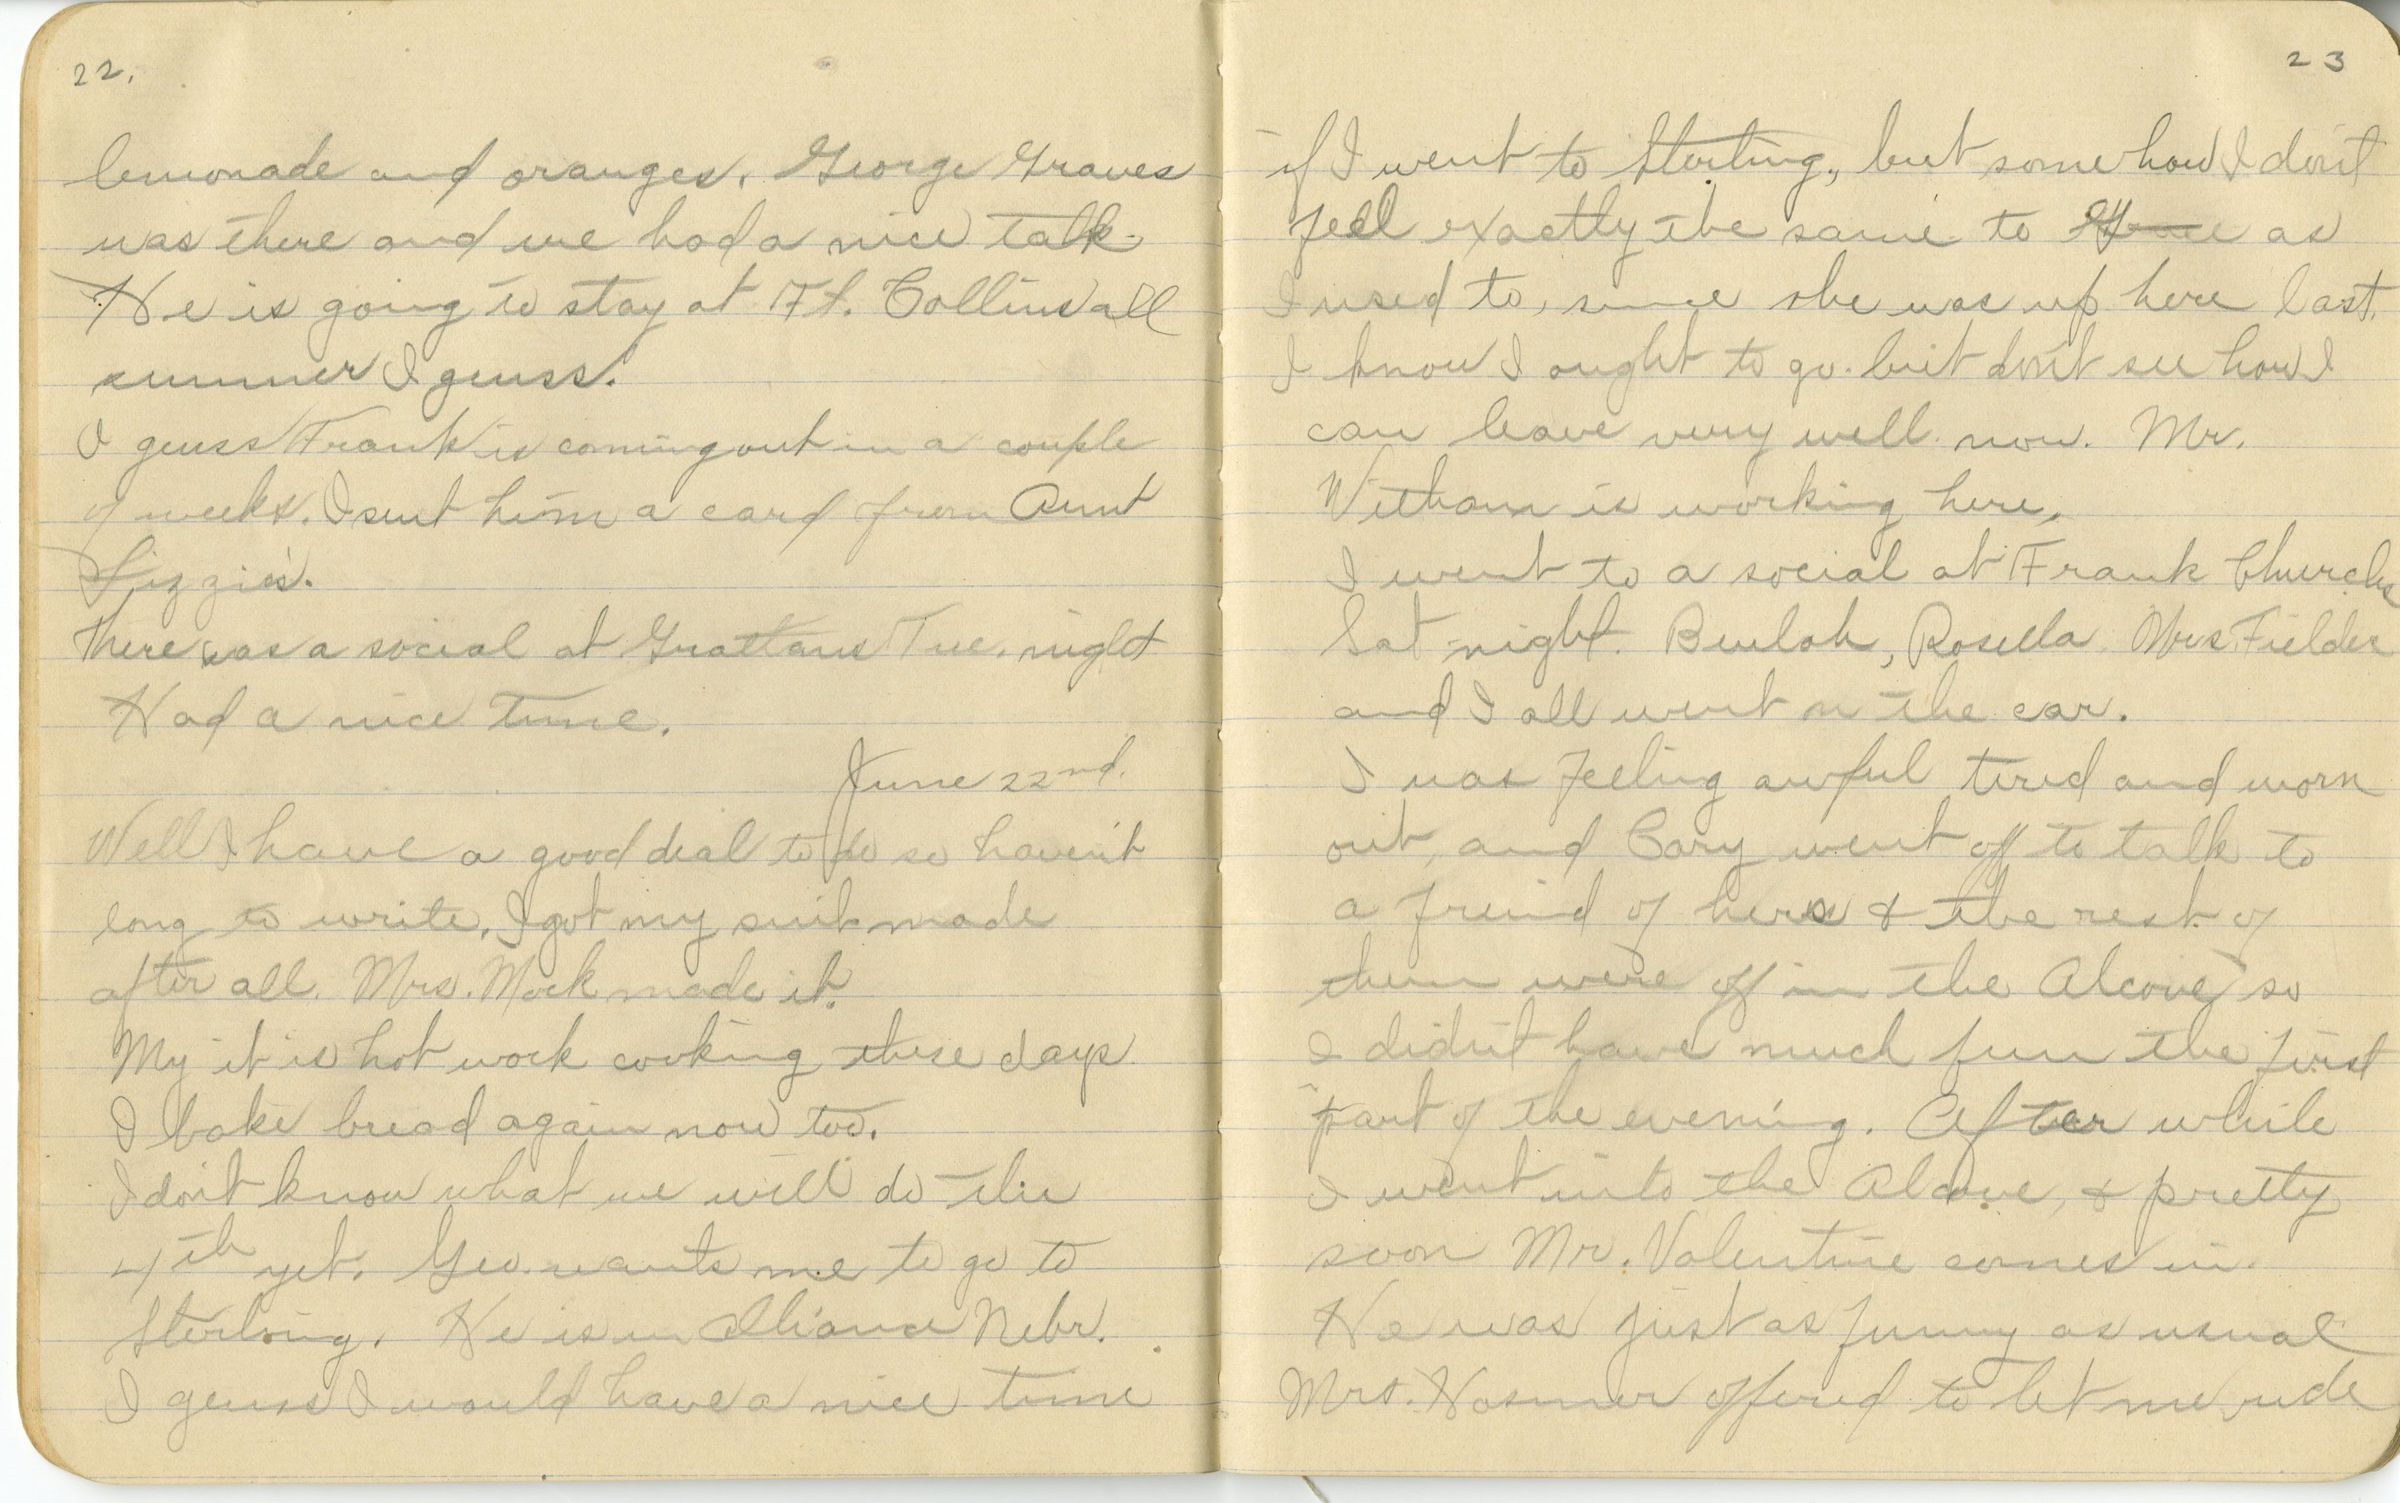 22.
lemonade and oranges. George Graves
was there and we had a nice talk.
He is going to stay at Ft. Collins all
summer I geuss.
I geuss Frank is coming out in a couple
of weeks. I sent him a card from Aunt
Lizzie's.
There was a social at Grattans Tue. night
Had a nice time.
June 22nd.
Well I have a good deal to do so haven't
long to write. I got my suit made
after all. Mrs. Mock made it.
My it is hot work cooking these days
I bake bread again now too.
I don't know what we will do the
4th yet. Geo. wants me to go to
Sterling. He is in Alliance Nebr.
I geuss I would have a nice time
23
if I went to Sterling, but some how I don't
feel exactly the same to as
I used to, since she was up here last.
I know I ought to go. but don't see how I
can leave very well now. Mr.
Witham is working here.
I went to a social at Frank Churchs
Sat night. Beulah, Rosella Mrs. Fielder
and I all went in the car.
I was feeling awful tired and worn
out, and Cary went off to talk to
a freind of hers & the rest of
them were off in the Alcove, so
I didn't have much fun the first
part of the evening. After while
I went into the Alcove, & pretty
soon Mr. Valentine comes in.
He was just as funny as usual
Mrs. Hosmer offered to let me ride